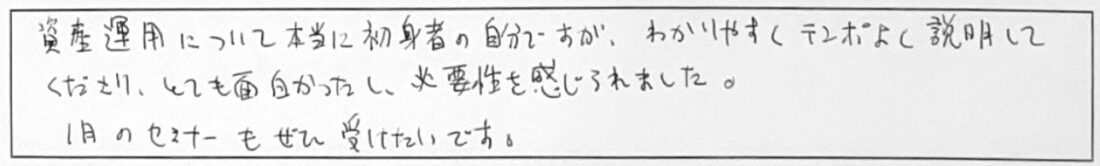 資産運用について本当に初身者の自分ですが、わかりやすくテンポよく説明して
くださり、とても面白かったし、必要性を感じられました。
1月のセミナーもぜひ受けたいです。